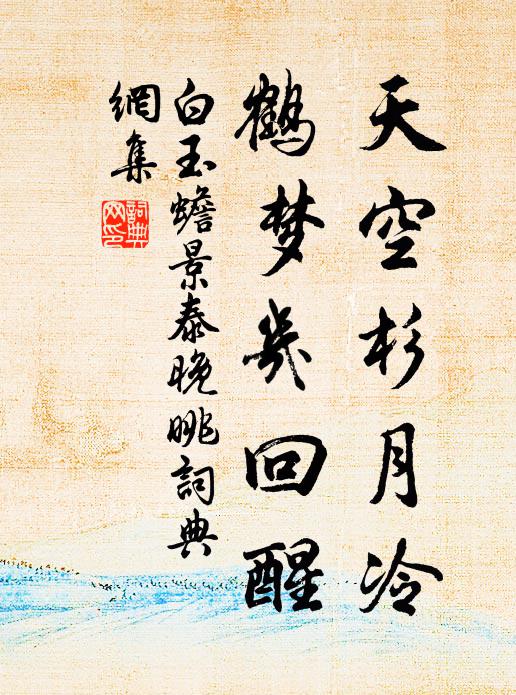 天空杉月冷
鹤梦几回醒
白玉蟾景泰晚眺詞典
網集
詞典网印